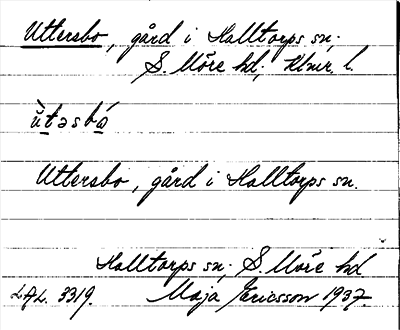 Uttersbo, gård i Halltorps sn.
S. Möre hd, Klmr. l.
ù̱təsbó̱
Uttersbo, gård i Halltorps sn.
Halltorps sn, S. Möre hd
LAL. 3319. Maja Ericsson 1937.